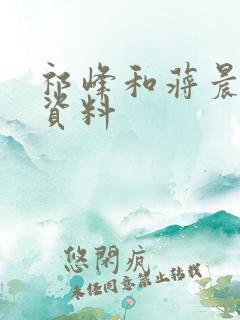 祁峰和蒋晨
资料
悠閑疯
未经同意禁止转载